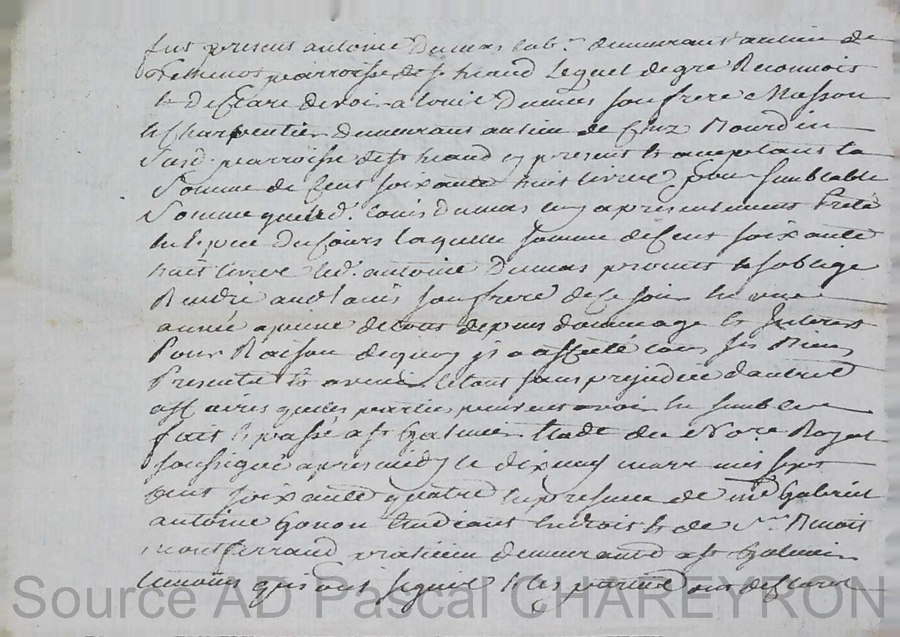 fut present antoine Dumas lab.r demeurant au lieu de
parroisse de st heand lequel de gre Reconnois
& Declare devoir a louis Dumas son frere Masson
& charpentier demeurant au lieu de chez Bourdin
Susd. parroisse de st heand cy present & acceptant la
Somme de Cent soixante huit livres pour semblable
Somme que led. louis Dumas luy a presentement Preté
En Espece du Cours laquelle somme de Cent soixante
huit livres led. antoine Dumas promet & soblige
Rendre aud. louis son frere de ce jour En une
année a peine de tous depens dommage & Interest
Pour Raison de quoy il a affecté tous ses Biens
Presents & avenir le tout sans prejudice dautres
affaires que les parties peuvent avoir En semble
fait & passé a st Galmier Etude du No.re Royal
soussigné apres midy le dix neuf mars mil sept
Cent soixante quatre En presence de me Gabriel
antoine Gonon Etudiant En droit & de S.r Benoit
montferrand praticien demeurant a st Galmier
temoins qui ont signé & les parties ont declaré
Source AD Pascal CHAREYRON